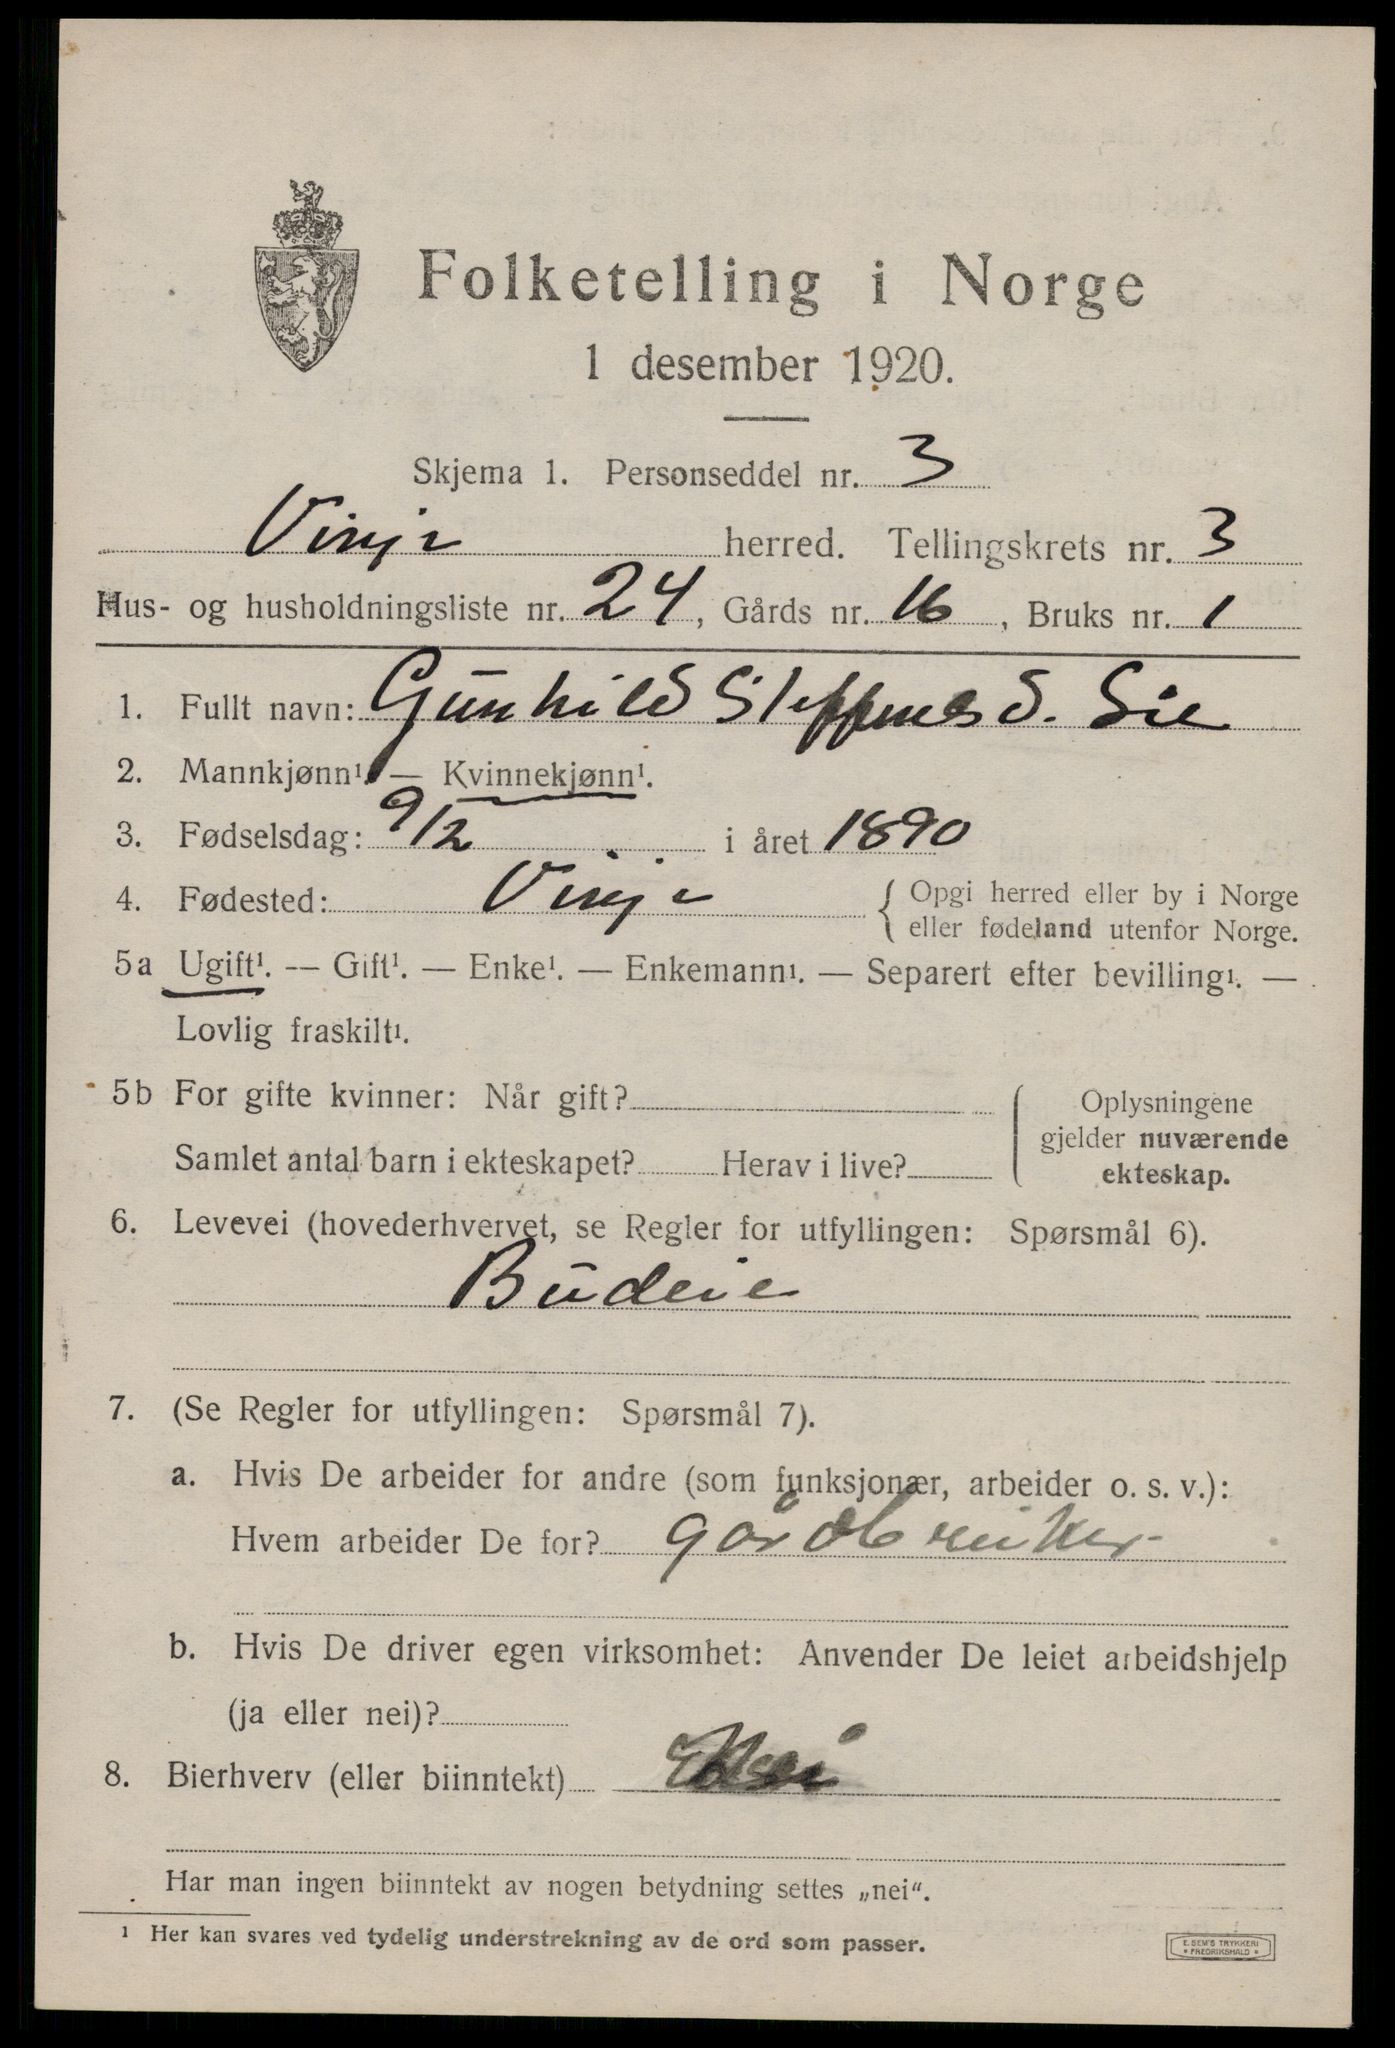 Folketelling i Norge
1 desember 1920.
Skjema 1. Personseddel nr. 3
Vinje herred. Tellingskrets nr. 3
Hus- og husholdningsliste nr. 24, Gårds nr. 16, Bruks nr. 1
1. Fullt navn: Gunhild Steffensd. Sie
2. Mannkjønn¹. — Kvinnekjønn¹.
3. Fødselsdag: 9/2 i året 1890
4. Fødested: Vinje { Opgi herred eller by i Norge
eller fødeland utenfor Norge.
5a Ugift¹. — Gift¹. — Enke¹. — Enkemann¹. — Separert efter bevilling¹. —
Lovlig fraskilt¹.
5b For gifte kvinner: Når gift?
Oplysningene
gjelder nuværende
ekteskap.
Samlet antal barn i ekteskapet? Herav i live?
6. Levevei (hovederhvervet, se Regler for utfyllingen: Spørsmål 6).
Budeie
7. (Se Regler for utfyllingen: Spørsmål 7).
a. Hvis De arbeider for andre (som funksjonær, arbeider o. s. v.):
Hvem arbeider De for? gårdbruker
b. Hvis De driver egen virksomhet: Anvender De leiet arbeidshjelp
(ja eller nei)?
8. Bierhverv (eller biinntekt) Nei
Har man ingen biinntekt av nogen betydning settes „nei“.
¹ Her kan svares ved tydelig understrekning av de ord som passer.
E. SEM'S TRYKKERI
* FREDRIKSHALD *